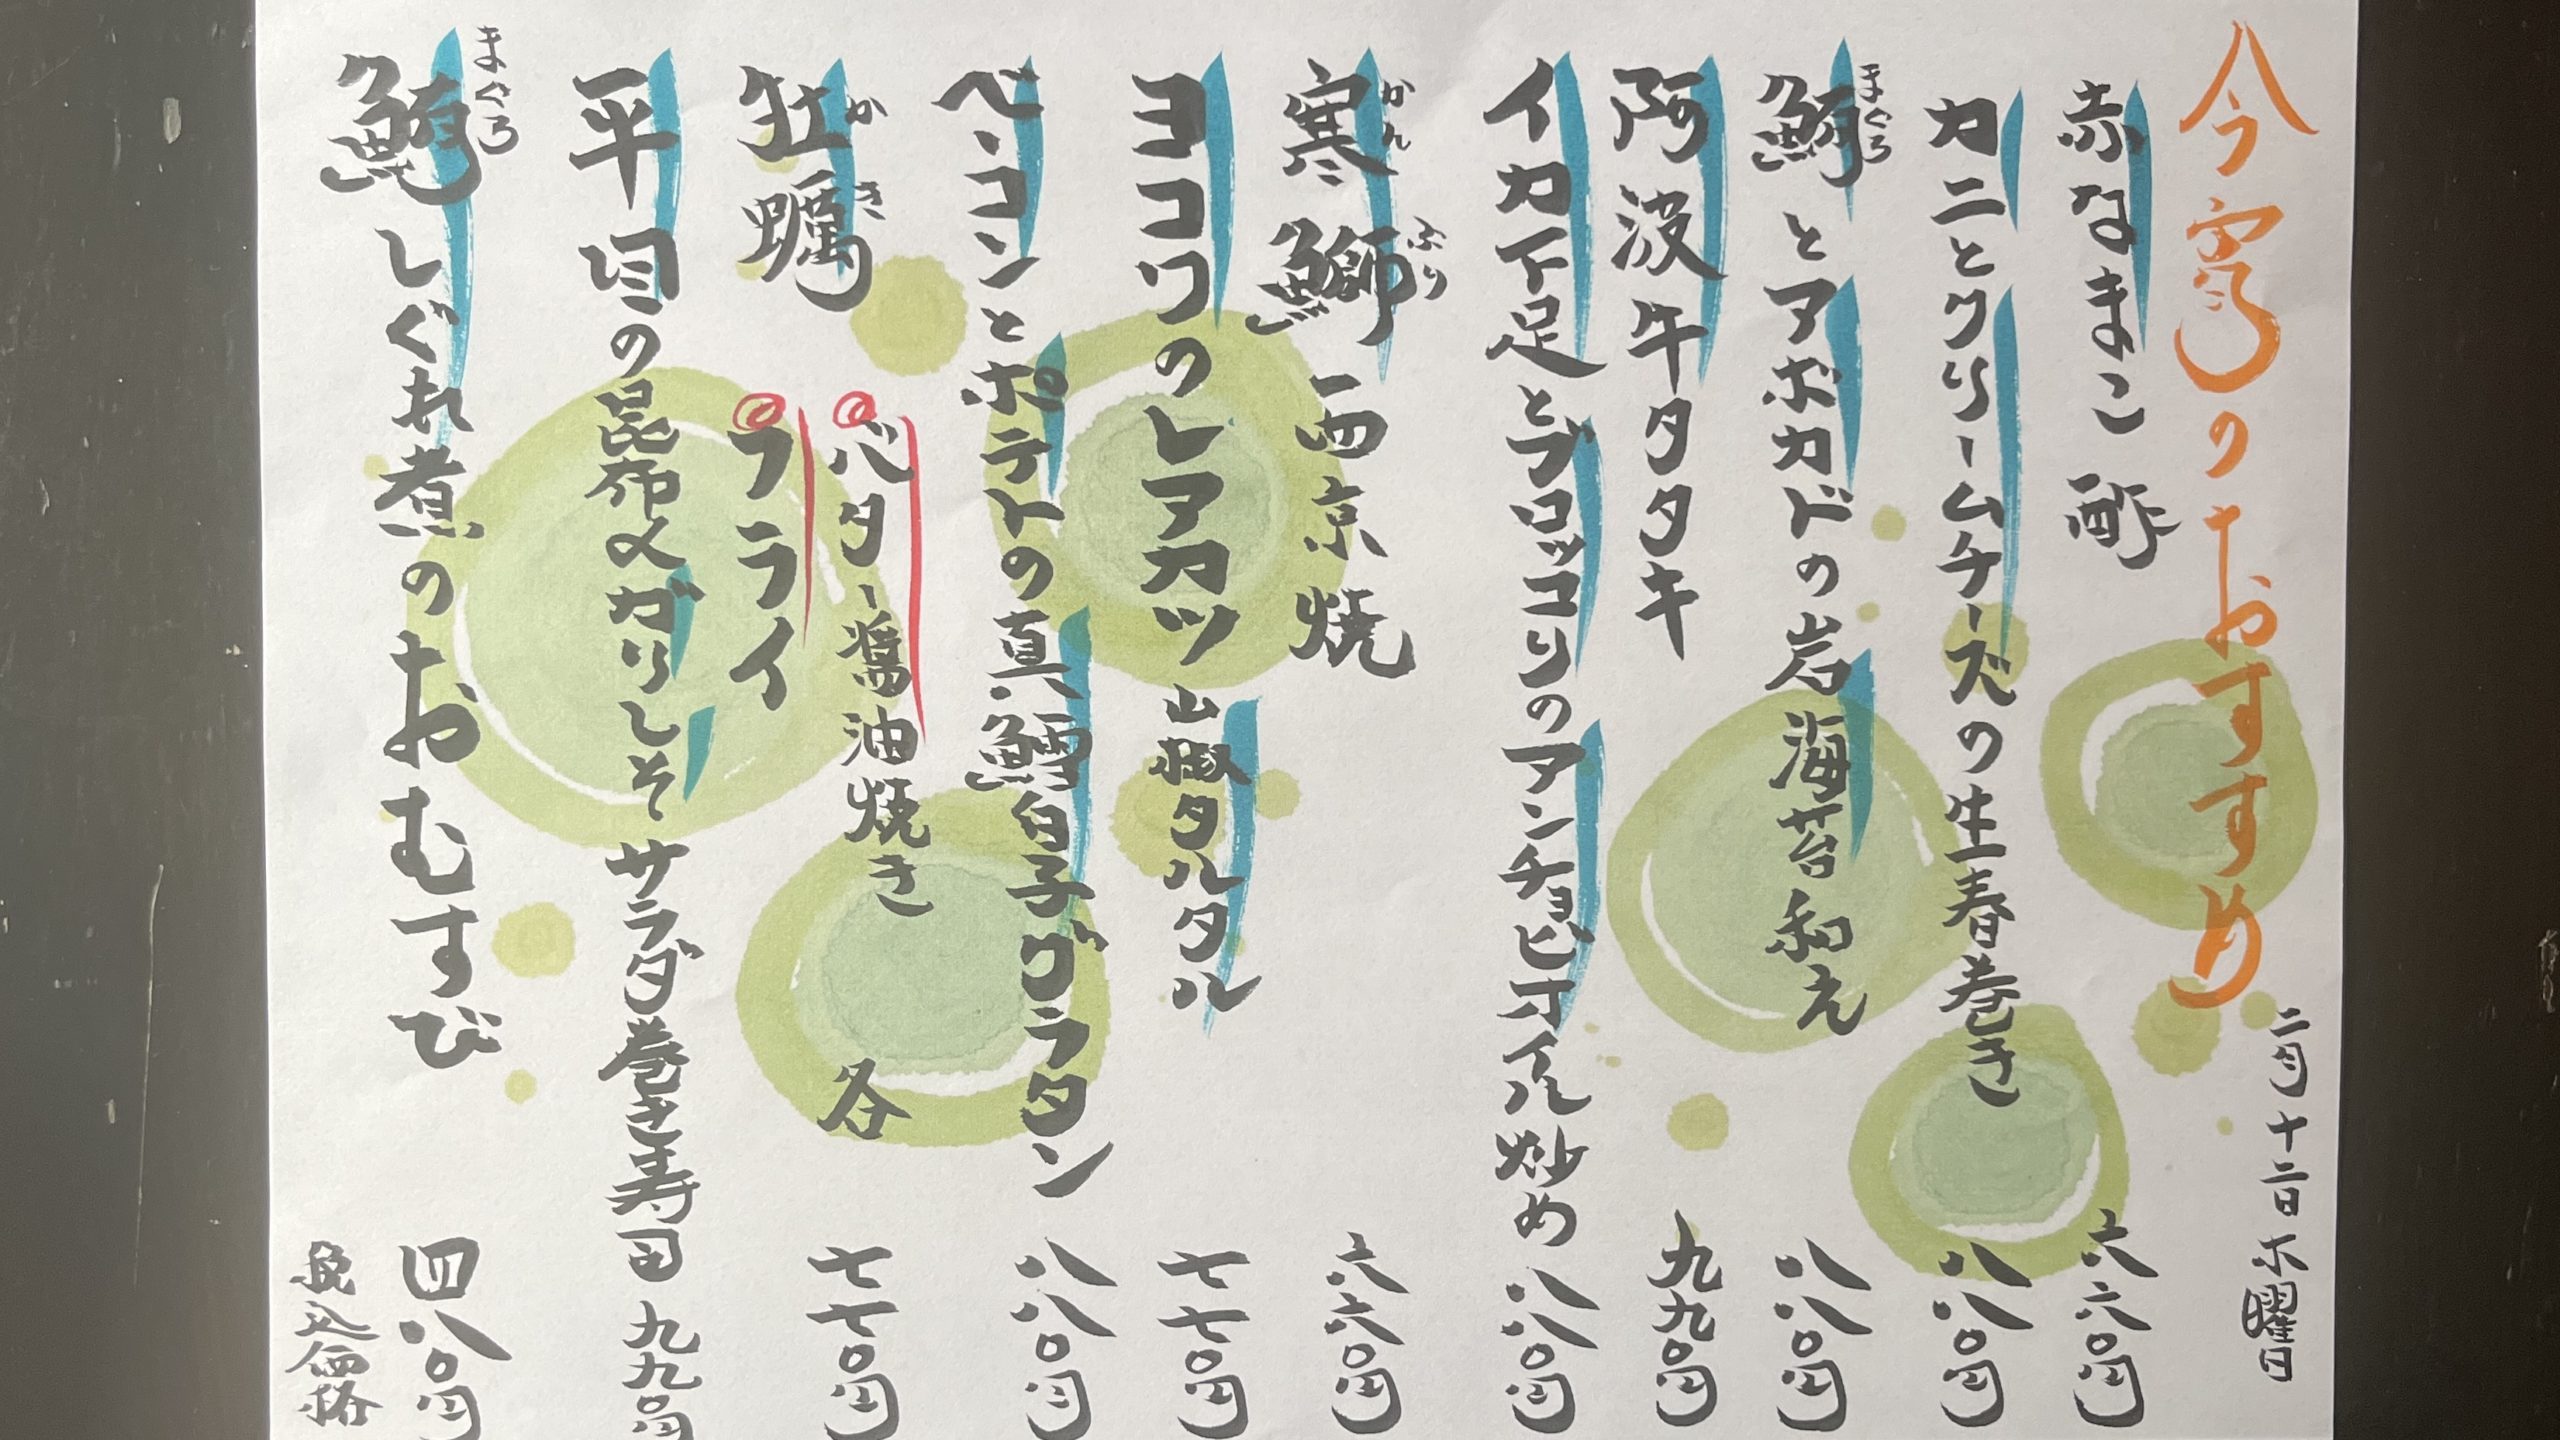 今宵のおすすめ
二月十二日 木曜日
赤なまこ酢 六六〇円
カニとクリームチーズの生春巻き 八八〇円
鮪とアボカドの岩海苔和え 八八〇円
まぐろ
阿波牛タタキ 九九〇円
イカ下足とブロッコリのアンチョビオイル炒め 八八〇円
寒鰤西京焼 六六〇円
かんぶり
ヨコワのレアカツ 山椒タルタル 七七〇円
ベーコンとポテトの真鱈白子グラタン 八八〇円
牡蠣 バター醤油焼き 各 七七〇円
かき
フライ
平目の昆布〆ガリしそサラダ巻き寿司 九九〇円
鮪しぐれ煮のおむすび 四八〇円
まぐろ
税込価格